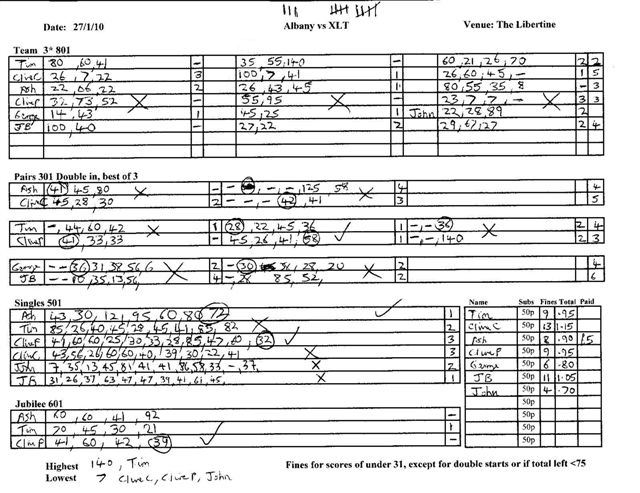 Date: 27/1/10 Albany vs XLT Venue: The Libertine
Team 3* 801
Tim 80, 60, 41 - 35, 55, 140 - 60, 21, 26, 70 2 2
Clive C 26, 7, 22 3 100, 7, 41 1 26, 60, 45, - 1 5
Ash 22, 06, 22 2 26, 43, 45 1 80, 55, 35, 8 - 3
Clive P 32, 73, 52 X - 55, 95 X - 23, 7, 7, - X 3 3
George 14, 43 1 45, 25 1 John 22, 28, 89 2
JB 100, 40 - 27, 22 2 29, 67, 27 2 4
Pairs 301 Double in, best of 3
Ash 41, 45, 80 X - -, -, -, 125 58 X 4 4
Clive C 45, 28, 30 2 - - - 42, 41 3 5
Tim -, 44, 60, 42 X 1 28, 22, 45, 36 ✓ 1 -, -, 36 X 2 4
Clive P 41, 33, 33 - 45, 26, 41, 58 1 -, -, 140 2 3
George - - 36 31, 38, 56, 6 X 2 - 30 31, 28, 20 X 2 4
JB - - 10, 35, 13, 56, 4 - 28 85, 52, 2 6
Singles 501
Ash 43, 30, 12, 95, 60, 80, 72 ✓ 1
Tim 85, 26, 40, 45, 28, 45, 41, 85, 82 X 2
Clive P 41, 60, 60, 25, 30, 33, 28, 85, 47, 60, 32 ✓ 3
Clive C, 43, 56, 26, 60, 60, 40, 39, 30, 22, 41 X 3
John 7, 35, 13, 45, 81, 41, 41, 86, 58, 33, -, 37, X 2
JB 31, 26, 37, 63, 47, 47, 39, 41, 61, 45, X 1
Name Subs Fines Total Paid
Tim 50p 9 .95
Clive C 50p 13 1.15
Ash 50p 8 .90
Clive P 50p 9 .95
George 50p 6 .80
JB 50p 11 1.05
John 50p 4 .70
50p
50p
50p
Jubilee 601
Ash 60, 60, 41, 92 -
Tim 70, 45, 30, 21 1
Clive P 41, 60, 42, 39 ✓ -
Highest 140, Tim
Lowest 7 Clive C, Clive P, John
Fines for scores of under 31, except for double starts or if total left <75